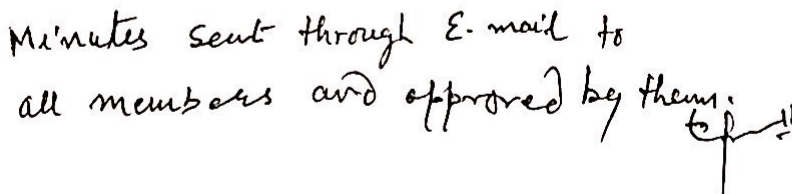 Minutes sent through E-mail to
all members and approved by them.